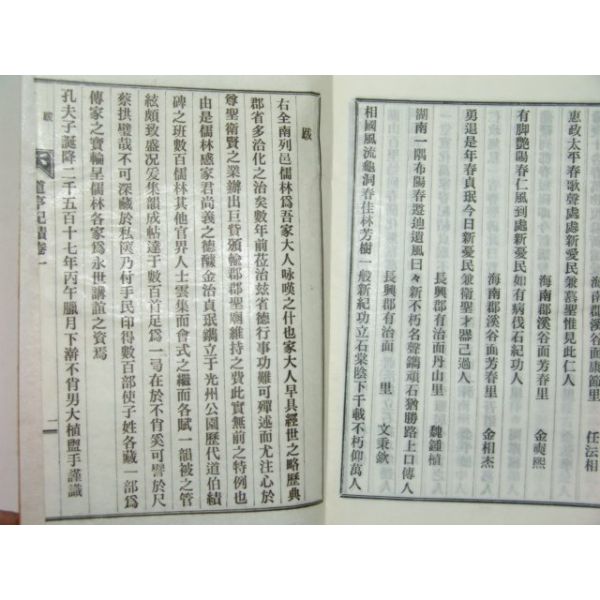 惠政太平春歌聲處處新愛民兼慕聖惟見此仁人
海南郡溪谷面康節里 任法相
有脚艷陽春仁風到處新愛民如有病伐石紀功人
海南郡溪谷面芳春里 金
勇退是年春貞珉今日新憂民兼衛聖才器己過人
海南郡溪谷面芳春里 金相杰
湖南一隅布陽春遵迪遺風日々新不朽名聲鐫頑石猶勝路上口傳人
長興郡有治面丹山里 魏鍾植
相國風流龜洞春佳林芳樹一般新紀功立石棠陰下千載不朽仰萬人
長興郡有治面 里 文秉欽
跋
右全南列邑儒林爲吾家大人咏嘆之什也家大人早具經世之略歷典
郡省多治化之治矣數年前莅治玆省德行事功難可殫述而尤注心於
尊聖衛賢之業辦出巨貲頒輸郡郡聖廟維持之費此實無前之特例也
由是儒林感家君尚義之德醵金治貞珉鐫立于光州公園歷代道伯績
碑之班數百儒林其他官界人士雲集而會式之繼而各賦一韻被之管
絃頗致盛况爰集韻成帖達于數百首足爲一弓在於不肖奚可譽於尺
蔡拱璧哉不可深藏於私篋乃付手民印得數百部使子姓各藏一部爲
傳家之寶輸呈儒林各家爲永世講誼之資焉
孔夫子誕降二千五百十七年丙午臘月下澣不肖男大植盥手謹識
跋
道亭記績卷一
一